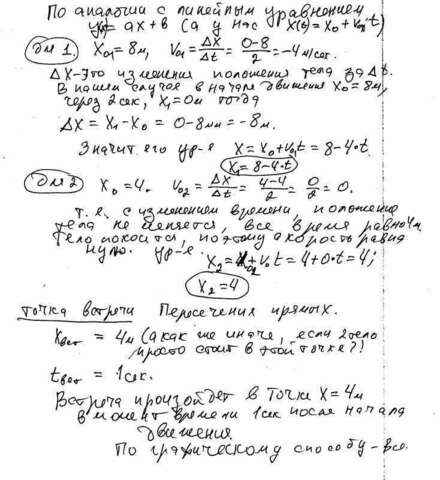 По аналогии с линейным уравнением
y = ax + b (а у нас X(t) = X₀ + V₀ₓ·t)
Для 1. X₀₁ = 8м, V₀₁ = ΔX/Δt = (0-8)/2 = -4 м/сек.
ΔX - Это изменения положения тела за Δt.
В нашем случае в начале движения X₀ = 8м,
через 2 сек, X₁ = 0м тогда
ΔX = X₁ - X₀ = 0-8м = -8м.
Значит его ур-е X = X₀ + V₀₁t = 8-4·t
X₁ = 8-4·t
Для 2 X₀ = 4. V₀₂ = ΔX/Δt = (4-4)/2 = 0/2 = 0.
т.е. с изменением времени, положение
тела не меняется, все время равно 4м.
Тело покоится, поэтому скорость равна
нулю. ур-е X₂ = X₀₂ + V₀t = 4+0·t = 4;
X₂ = 4
точка встречи Пересечения прямых.
Xвст = 4м (а как же иначе, если 2 тело
просто стоит в этой точке?!
tвст = 1сек.
Встреча произойдет в точке X = 4м
в момент времени 1сек после начала
движения.
По графическому способу - все.